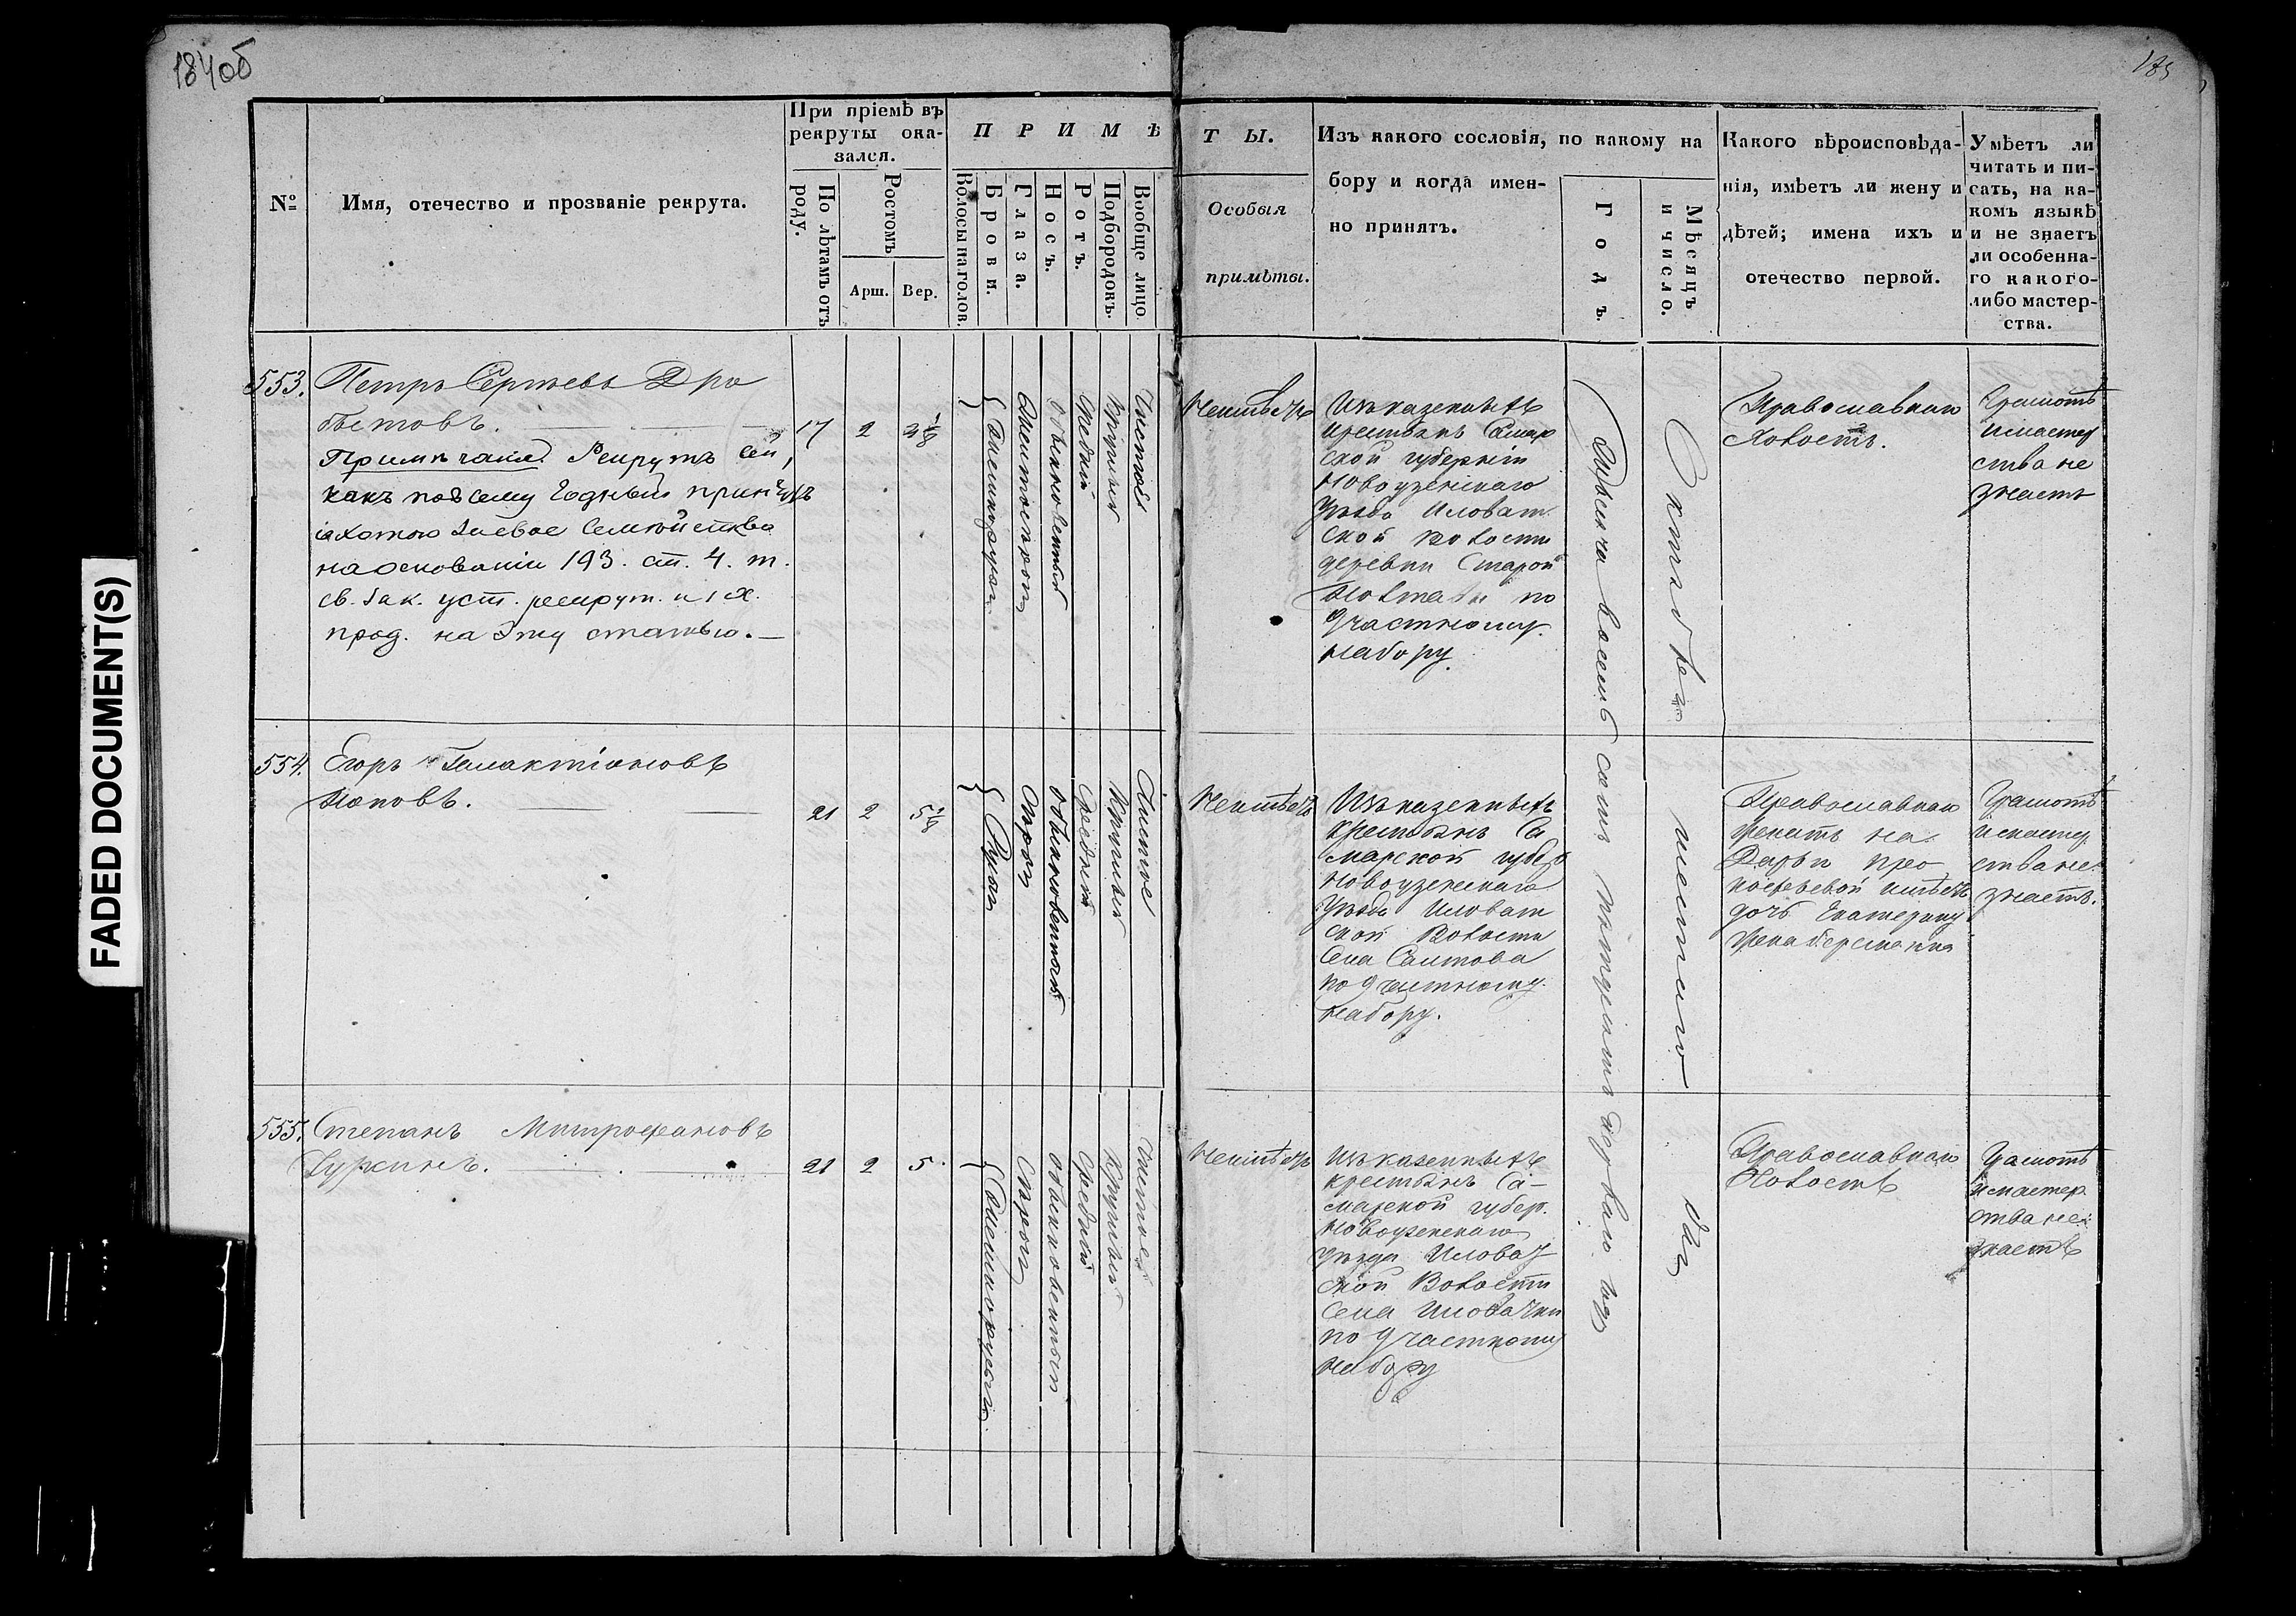 184об
185
FADED DOCUMENT(S)
№
Имя, отечество и прозваніе рекрута.
При пріемѣ въ
рекруты ока-
зался.
По лѣтамъ отъ
роду.
Ростомъ
Арш.
Вер.
ПРИМѢ
Волосы на голов.
Брови.
Глаза.
Носъ.
Ротъ.
Подбородокъ.
Вообще лицо.
ТЫ.
Особыя
примѣты.
Изъ какого сословія, по какому на
бору и когда имен-
но принятъ.
Годъ.
Мѣсяцъ
и число.
Какого вѣроисповѣда-
нія, имѣетъ ли жену и
дѣтей; имена ихъ и
отечество первой.
Умѣетъ ли
читать и пи-
сать, на ка-
комъ языкѣ
и не знаетъ
ли особенна-
го какого-
либо мастер-
ства.
553.
Петръ Сергѣевъ
17
2
Примѣчаніе. Рекрутъ сей,
какъ по всему годный принятъ
охотою за свое семейство
на основаніи 193. ст. 4. т.
св. зак. уст. рекрут. и
прод. на эту статью.
Обыкновенный
Средній
Круглый
Чистое
Неимѣетъ
Изъ казенныхъ
крестьянъ Самар
ской губерніи
Новоузенскаго
Уѣзда Иловат
ской волости
деревни Старой
Полтавки по
Участному
набору.
Тысяча восемь сотъ пятдесятъ перваго года
Октября шестаго дня
Православнаго
Холостъ.
Грамотѣ
и мастер
ства не
знаетъ
554.
Егоръ Галактіоновъ
Поповъ.
21
2
5 1/8
Русыя
Сѣрыя
Обыкновенный
Средній
Круглый
Чистое
Неимѣетъ
Изъ казенныхъ
крестьянъ Са
марской губер
Новоузенскаго
Уѣзда Иловат
ской Волости
Села Салтова
по Участному
набору.
Православнаго
женатъ на
Дарьи Про
кофьевой имѣетъ
дочь Екатерину
жена беременна
Грамотѣ
и мастер
ства не
знаетъ.
555.
Степанъ Митрофановъ
21
2
5
Сѣрыя
Обыкновенный
Средній
Круглый
Чистое
Неимѣетъ
Изъ казенныхъ
крестьянъ Са-
марской губер.
Новоузенскаго
Уѣзда Иловат
ской Волости
Села Иловатки
по Участному
набору
Православнаго
Холостъ
Грамотѣ
и мастер
ства не
знаетъ